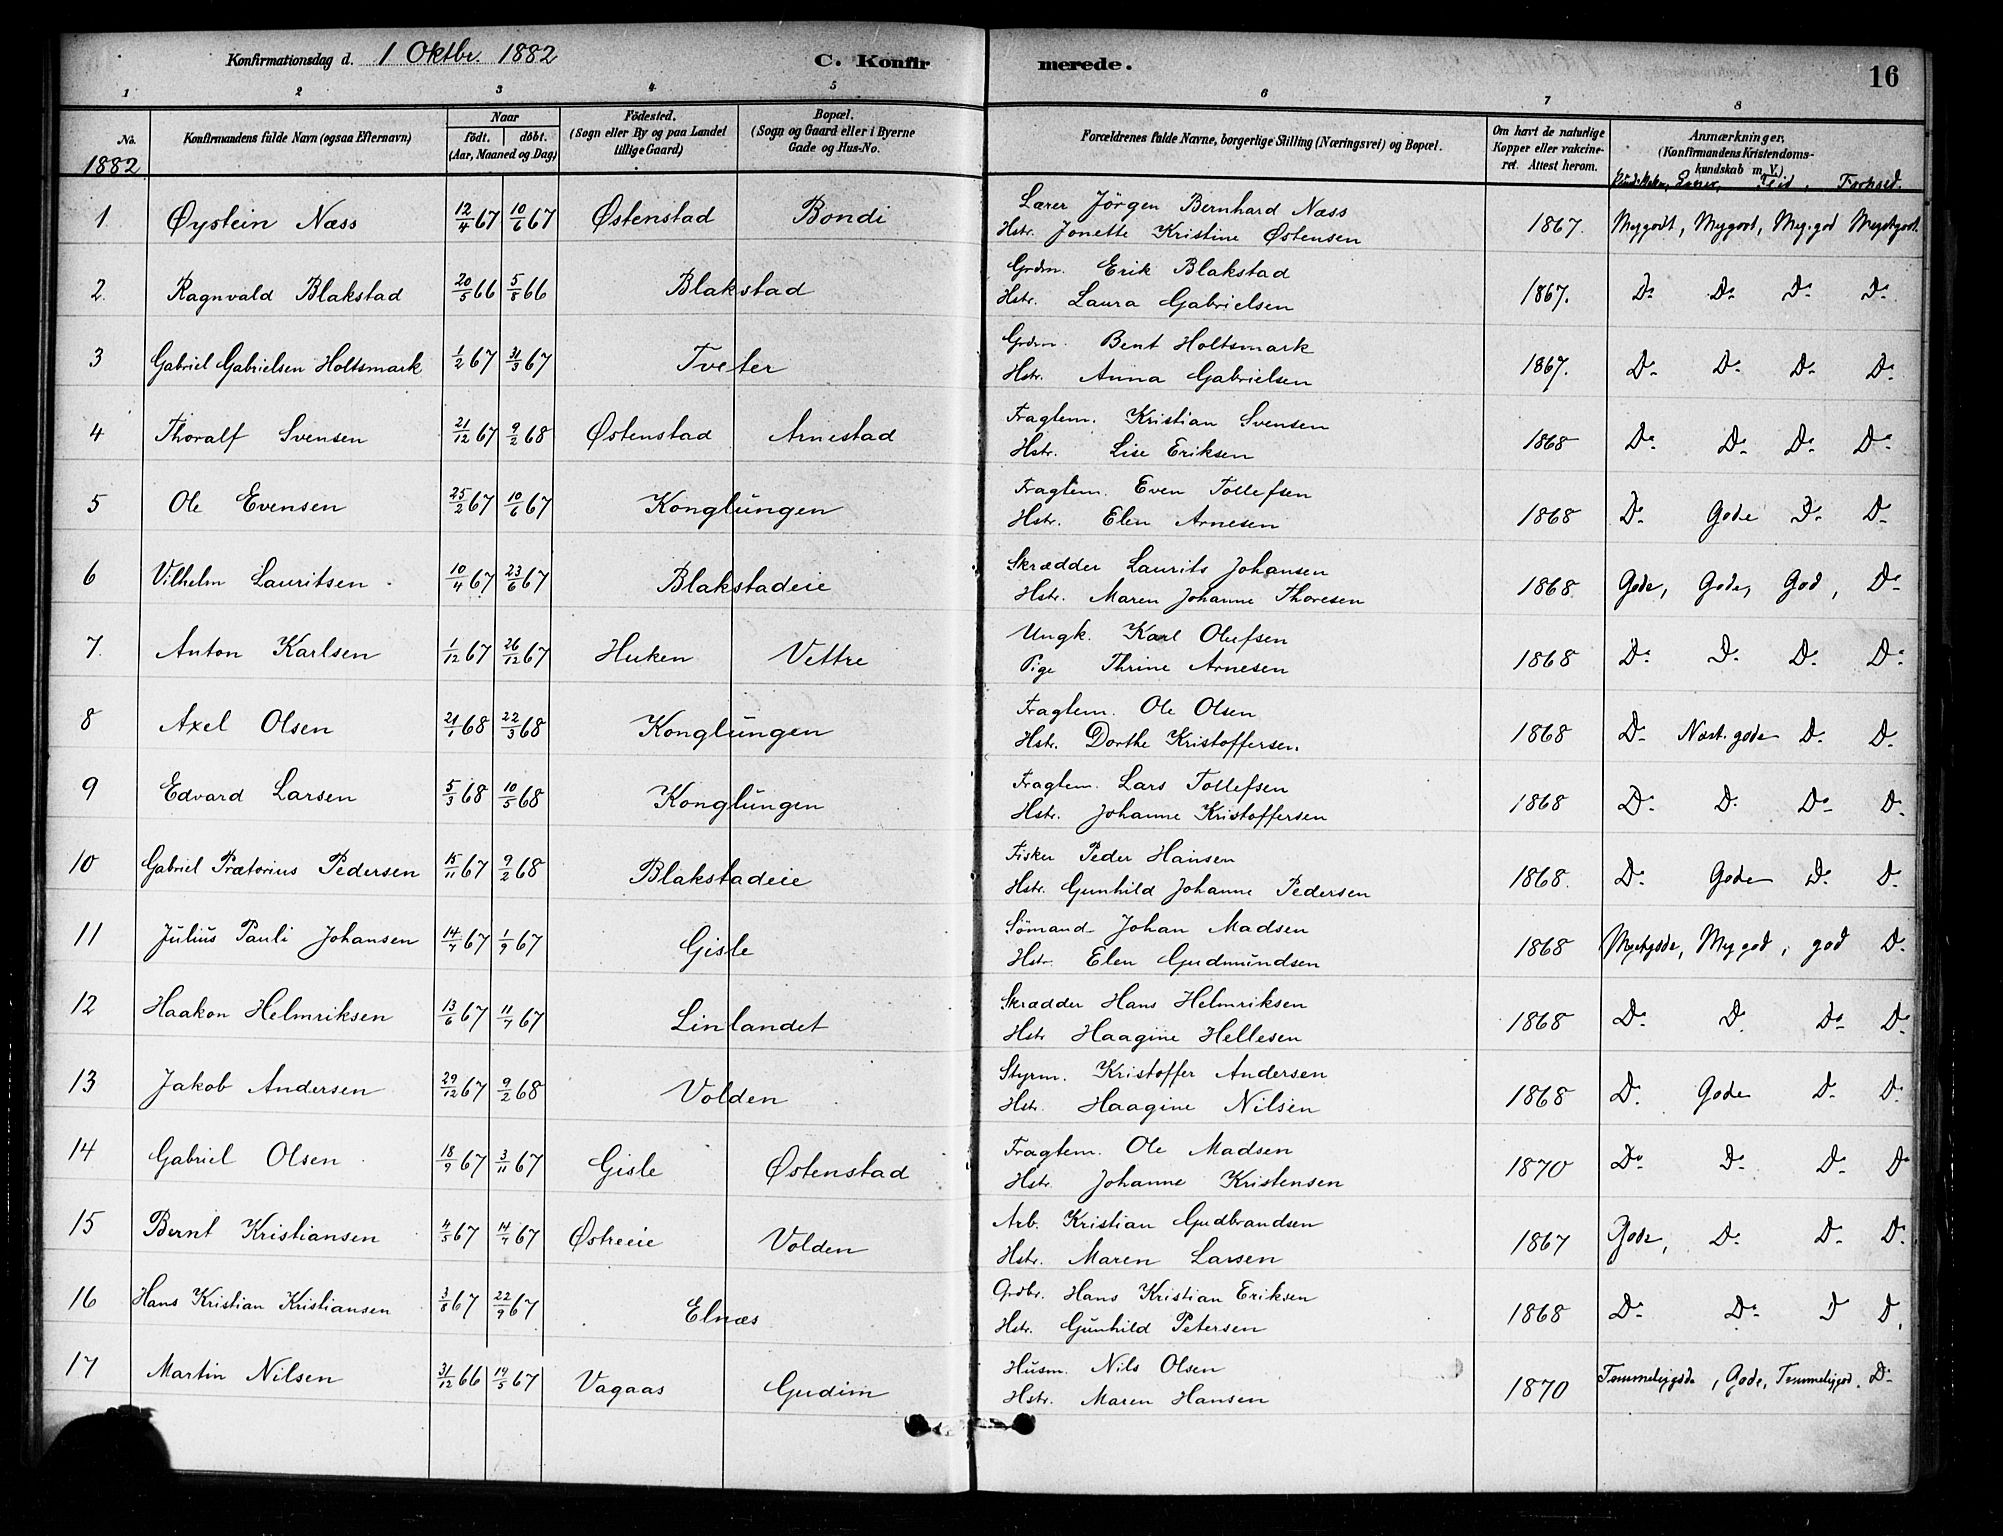 Konfirmationsdag d. 1 Oktbr. 1882 C. Konfirmerede. 16
1 2 3 4 5 6 7 8
No. 1882 Konfirmandens fulde Navn (ogsaa Efternavn) Naar födt. döbt. (Aar, Maaned og Dag) Födested. (Sogn eller By og paa Landet tillige Gaard) Bopæl. (Sogn og Gaard eller i Byerne Gade og Hus-No. Forældrenes fulde Navne, borgerlige Stilling (Næringsvei) og Bopæl. Om havt de naturlige Kopper eller vakcineret. Attest herom. Anmærkninger, (Konfirmandens Kristendomskundskab m. V.)
Flid, Forhold.
1 Øystein Næss 12/4 67 10/6 67 Østenstad Bondi Lærer Jörgen Bernhard Næss 1867. Megodt, Meg.godt, Meg.god Megetgodt
Hstr. Jonette Kristine Østensen
2. Ragnvald Blakstad 20/5 66 5/8 66 Blakstad Grdm. Erik Blakstad 1867. Do Do Do Do
Hstr. Laura Gabrielsen
3 Gabriel Gabrielsen Holtsmark 1/2 67 31/3 67 Tveter Grdm. Bent Holtsmark 1867. Do Do Do Do
Hstr. Anna Gabrielsen
4 Thoralf Svensen 21/12 67 9/2 68 Østenstad Arnestad Fragtem. Kristian Svensen 1868 Do Do Do Do
Hstr. Lise Eriksen
5 Ole Evensen 25/2 67 10/6 67 Konglungen Fragtem. Even Tollefsen 1868 Do Gode Do Do
Hstr. Elen Arnesen
6 Vilhelm Lauritsen 10/4 67 23/6 67 Blakstadeie Skrædder Laurits Johansen 1868. Gode, Gode, God, Do
Hstr. Maren Johanne Thoresen
7. Anton Karlsen 1/12 67 26/12 67 Huken Vettre Ungk. Karl Olufsen 1868 Do Do Do Do
Pige Thrine Arnesen
8 Axel Olsen 21/1 68 22/3 68 Konglungen Fragtem. Ole Olsen 1868 Do Næst. gode Do Do
Hstr. Dorthe Kristoffersen.
9 Edvard Larsen 5/3 68 10/5 68 Konglungen Fragtem. Lars Tollefsen 1868 Do Do Do Do
Hstr. Johanne Kristoffersen
10 Gabriel Prætorius Pedersen 15/11 67 9/2 68 Blakstadeie Fisker Peder Hansen 1868. Do Gode Do Do
Hstr. Gunhild Johanne Pedersen
11 Julius Pauli Johansen 14/7 67 1/9 67 Gisle Sömand Johan Madsen 1868 Megetgode, Meg god, god Do
Hstr. Elen Gudmundsen
12 Haakon Helmriksen 13/6 67 11/7 67 Linlandet Skrædder Hans Helmriksen 1868 Do Do Do Do
Hstr Haagine Hellesen
13 Jakob Andersen 29/12 67 9/2 68 Volden Styrm. Kristoffer Andersen 1868 Do Gode Do Do
Hstr. Haagine Nilsen
14 Gabriel Olsen 18/9 67 3/11 67 Gisle Østenstad Fragtem. Ole Madsen 1870 Do Do Do Do
Hstr. Johanne Kristensen
15 Bernt Kristiansen 4/5 67 14/7 67 Østreeie Volden Arb. Kristian Gudbrandsen 1867 Gode, Do Do Do
Hstr. Maren Larsen
16 Hans Kristian Kristiansen 3/8 67 22/9 67 Elnæs Grdbr. Hans Kristian Eriksen 1868 Do Do D D
Hstr. Gunhild Petersen
17 Martin Nilsen 31/12 66 19/5 67 Vagaas Gudim Husm. Nils Olsen 1870 Temmeliggode, Gode, Temmeliggod. Do
Hstr. Maren Hansen